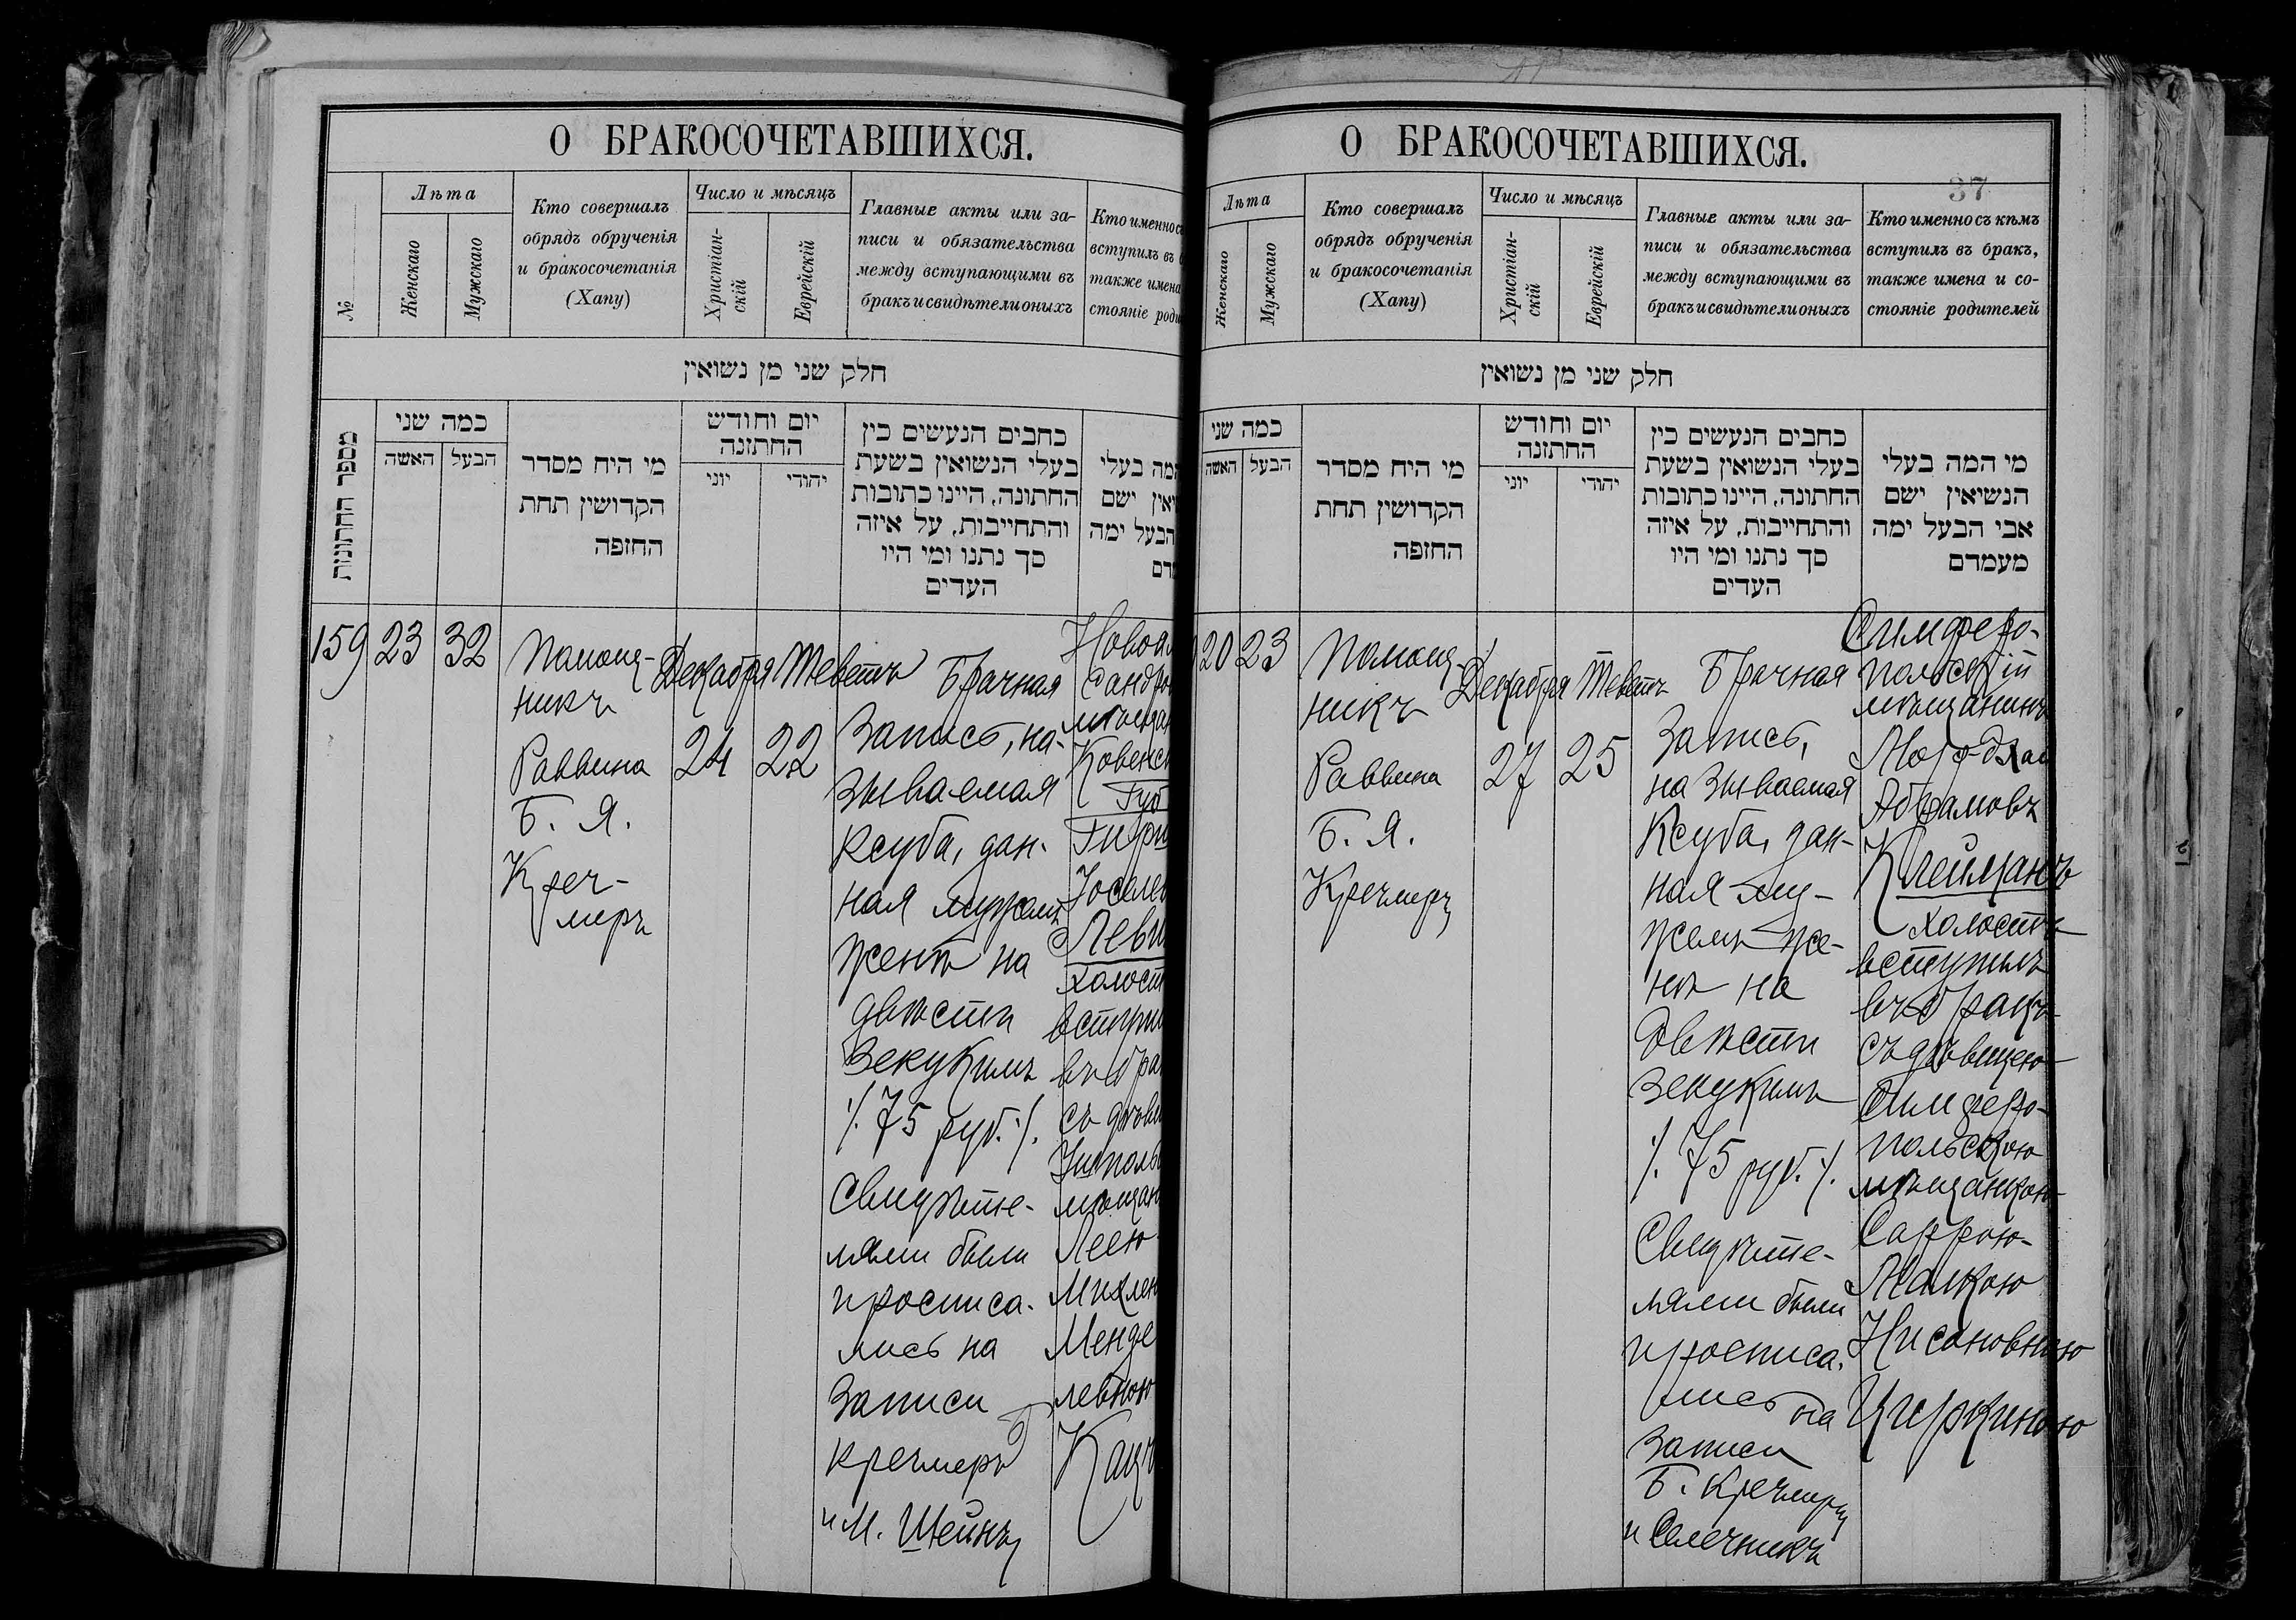 О БРАКОСОЧЕТАВШИХСЯ.
№
Лѣта
Женскаго
Мужскаго
Кто совершалъ
обрядъ обрученія
и бракосочетанія
(Хапу)
Число и мѣсяцъ
Христіан-
скій
Еврейскій
Главные акты или за-
писи и обязательства
между вступающими въ
бракъ и свидѣтели оныхъ
Кто именно съ
вступилъ въ
также имена
стояніе
חלק שני מן נשואין
מספר החתונות
כמה שני
האשה
הבעל
מי היח מסדר
הקדושין תחת
החזפה
יום וחודש
החתזנה
יוני
יהודי
כחבים הנעשים כין
בעלי הנשואין בשעת
החתונה, היינו כתובות
והתחייבות, על איזה
סך נתנו ומי היו
העדים
המה בעלי
ישם
הבעל ימה
159
23
32
Помощ-
никъ
Раввина
Б. Я.
Креч-
меръ
Декабря
24
Теветъ
22
Брачная
запись, на-
зываемая
ксуба, дан-
ная мужемъ
женѣ на
двѣсти
зекукимъ
/. 75 руб. /.
Свидѣте-
лями были
и росписа-
лись на
записи
Кречмеръ
и М. Штейнъ
Ковенс
Губ
Левин
холост
вступи
въ бра
съ дѣви
мѣщан
Леею
Михлею
Менде
левною
Кацъ
О БРАКОСОЧЕТАВШИХСЯ.
37
Лѣта
Женскаго
Мужскаго
Кто совершалъ
обрядъ обрученія
и бракосочетанія
(Хапу)
Число и мѣсяцъ
Христіан-
скій
Еврейскій
Главные акты или за-
писи и обязательства
между вступающими въ
бракъ и свидѣтели оныхъ
Кто именно съ кѣмъ
вступилъ въ бракъ,
также имена и со-
стояніе родителей
חלק שני מן נשואין
כמה שני
האשה
הבעל
מי היח מסדר
הקדושין תחת
החזפה
יום וחודש
החתזנה
יוני
יהודי
כחבים הנעשים כין
בעלי הנשואין בשעת
החתונה, היינו כתובות
והתחייבות, על איזה
סך נתנו ומי היו
העדים
מי המה בעלי
הנשיאין ישם
אבי הבעל ימה
מעמדם
20
23
Помощ-
никъ
Раввина
Б. Я.
Кречмеръ
Декабря
27
Теветъ
25
Брачная
запись,
называемая
ксуба, дан-
ная му-
жемъ же-
нѣ на
двѣсти
зекукимъ
/. 75 руб. /.
Свидѣте-
лями были
и росписа-
лись на
записи
Б. Кречмеръ
и Сапечникъ
Симферо-
польскій
мѣщанинъ
Мордхай
Абрамовъ
Клейманъ
холостъ
вступилъ
въ бракъ
съ дѣвицею
Симферо-
польскою
мѣщанкою
Саррою-
Малкою
Нисановною
Циркиною